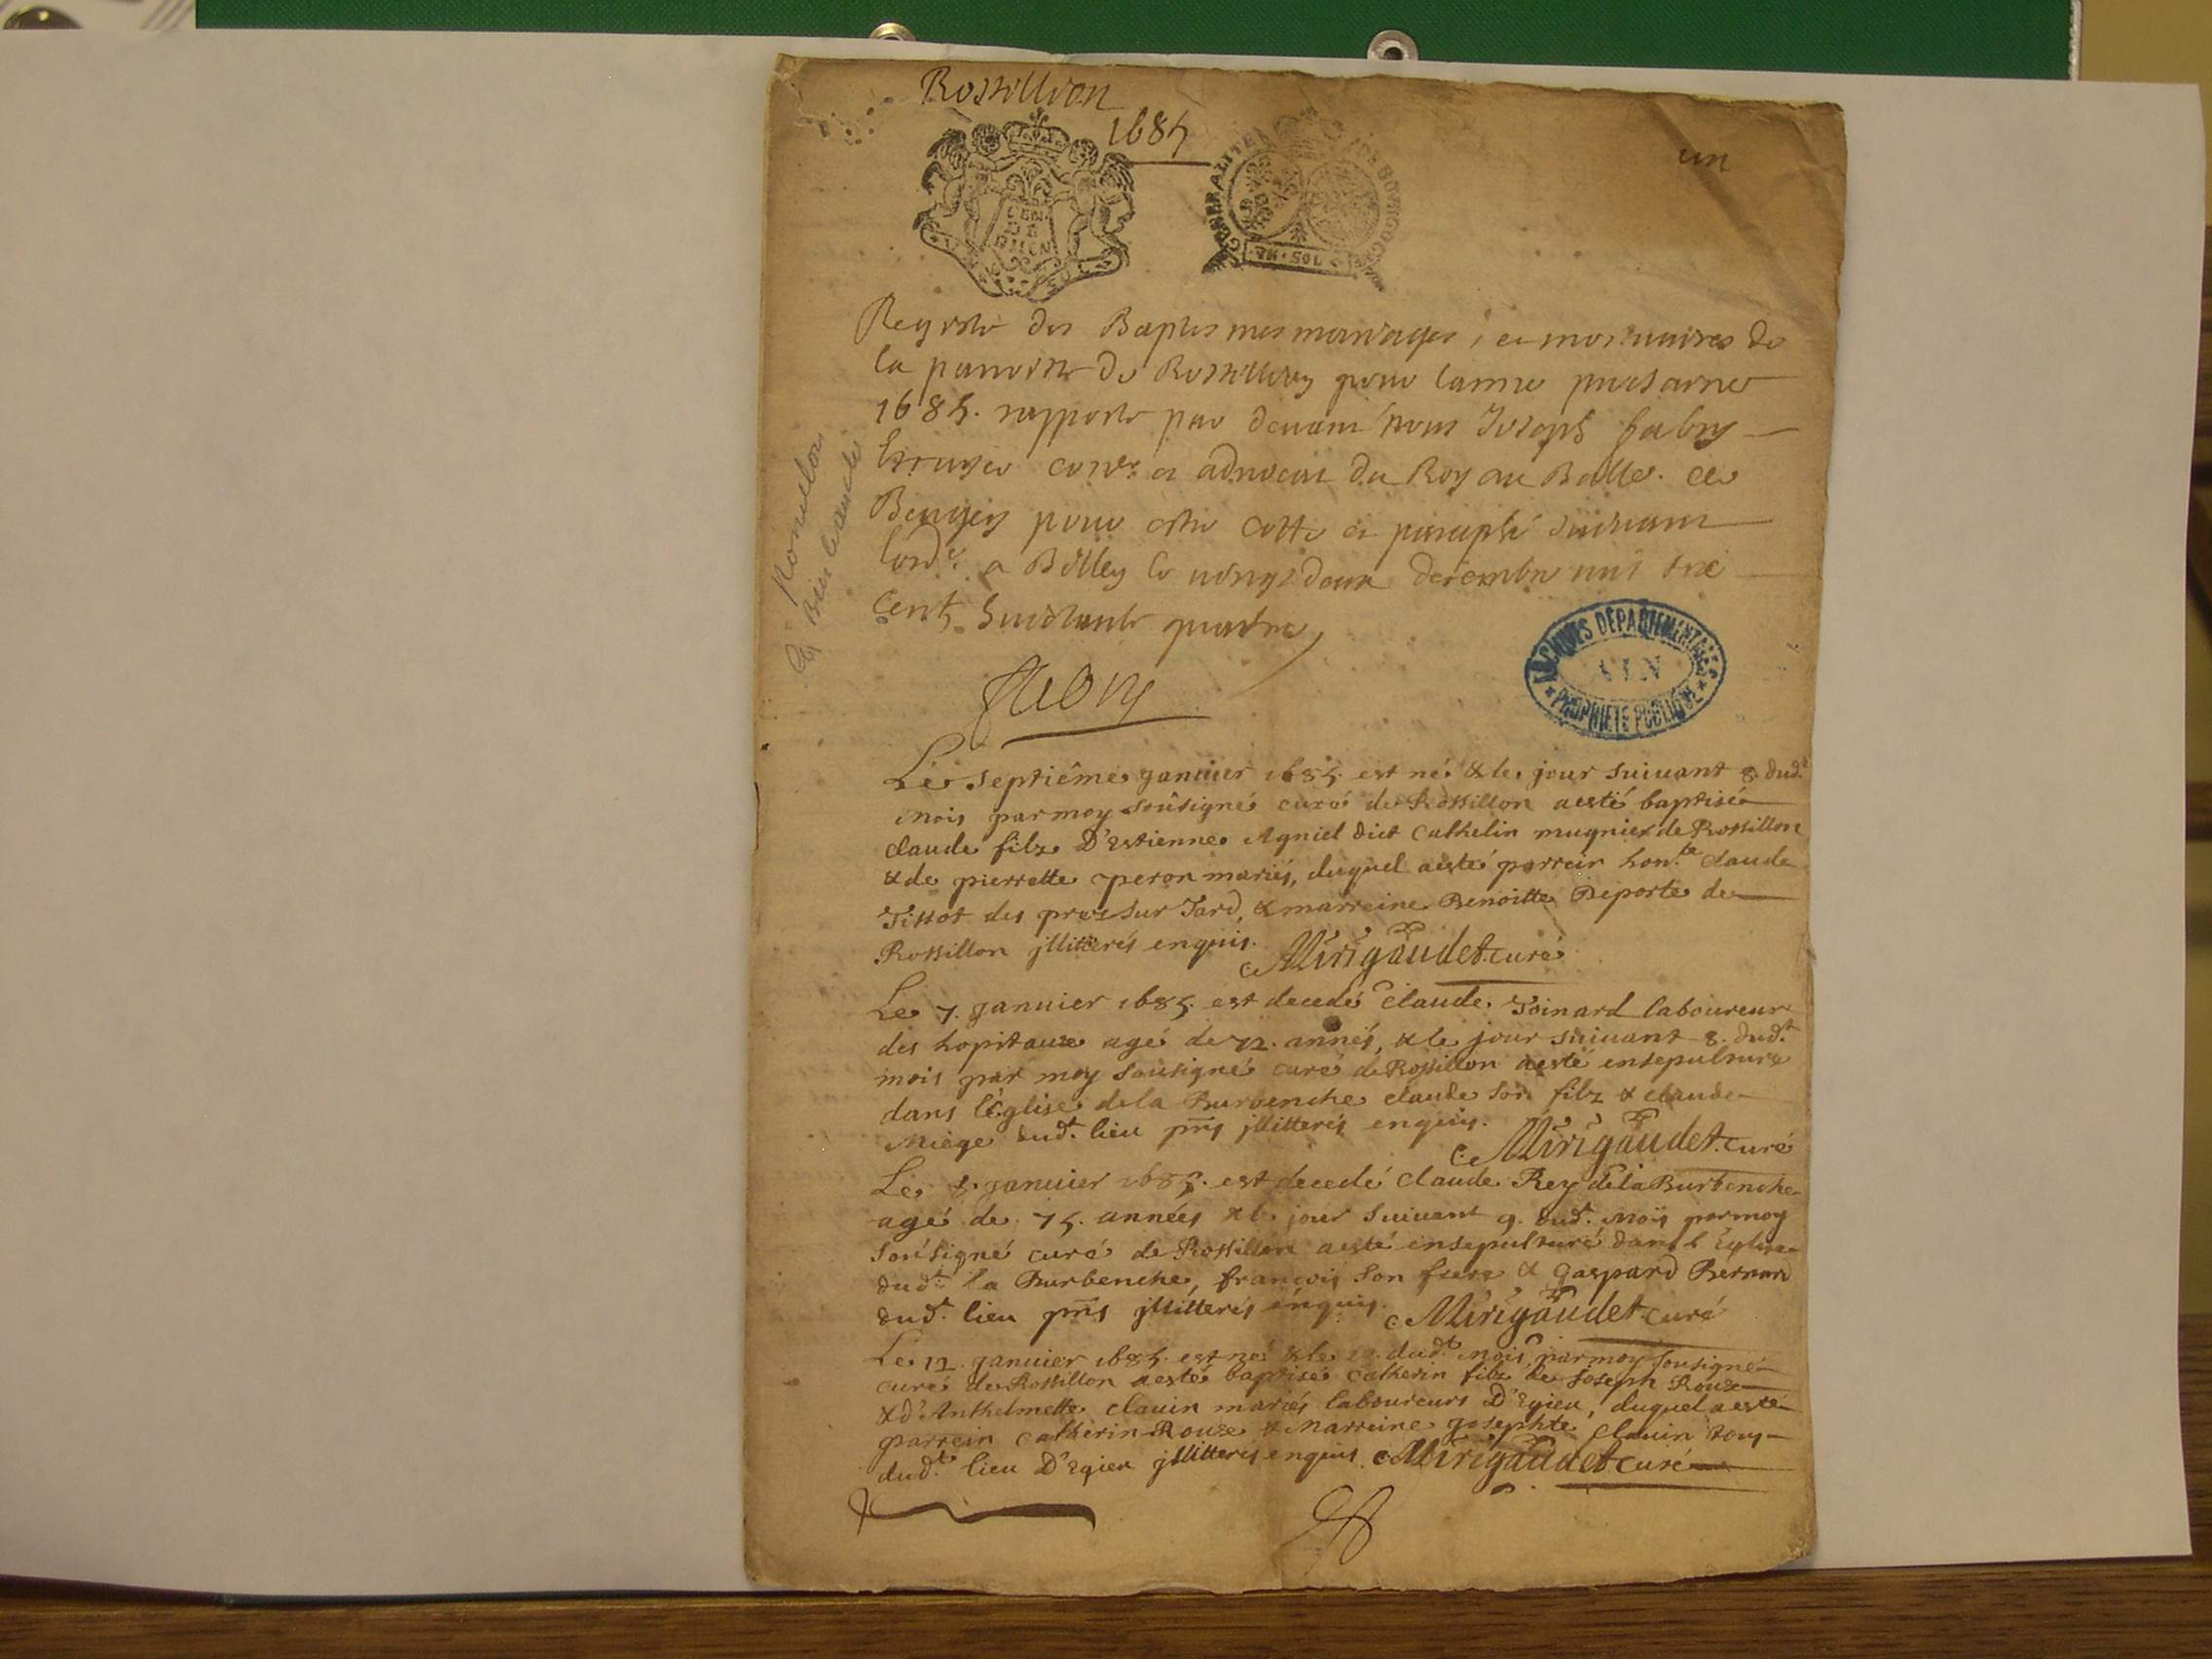 Rossillion
1685
un
GEN
DE
DIION
GENERALITE DE BOURGOGNE
VN·SOL
Registre des Baptesmes mariages, et mortuaires de
la parroisse de Rossillion pour lannee prochaine
1685. rapporte par devant nous Joseph fabry
Escuyer coner et advocat du Roy au Balle. de
Beugey pour estre cotte et paraphé suivant
lorde. a Belley le vingt deux decembre mil six
cent huictante quatre,
fabry
ARCHIVES DÉPARTEMENTALES
AIN
PROPRIÉTÉ PUBLIQUE
Le septiême januier 1685. est né & le jour suiuant 8. dud.t
mois par moy soûsigné curé de Rossillon a esté baptisée
claude filz D'estienne Agniel dict Cathelin mugnier de Rossillon
& de pierrette peron mariés, duquel a esté parrein hon.le claude
Tissot des prez sur Jard, & marreine Benoitte Deporte de
Rossillon jllitterés enquis. Mirigaudet curé
Le 7. januier 1685. est decedé claude Joinard laboureur
des hopitaux agé de 72. annés, & le jour suiuant 8. dud.t
mois par moy sousigné curé de Rossillon a esté ensepulturé
dans l'Eglise de la Burbenche claude son filz & claude
Miege dud.t lieu pnts jllitterés enquis. Mirigaudet curé
Le 8. januier 1685. est decedé claude Rey de la Burbenche
agé de 75. années & le jour suiuant 9. dud.t mois par moy
sousigné curé de Rossillon a esté ensepulturé dans l'Eglise
dud.t la Burbenche, françois son frere & gaspard Bernard
dud.t lieu pnts jllitterés enquis. Mirigaudet curé
Le 12. januier 1685. est né & le dud.t mois par moy sousigné
curé de Rossillon a esté baptisé catherin filz de Joseph Rouze
& d'Anthelmette clauin mariés laboureurs D'Egieu, duquel a esté
parrein catherin Rouze & Marreine josephte clauin tous
dud.t lieu D'Egieu jllitterés enquis. Mirigaudet curé